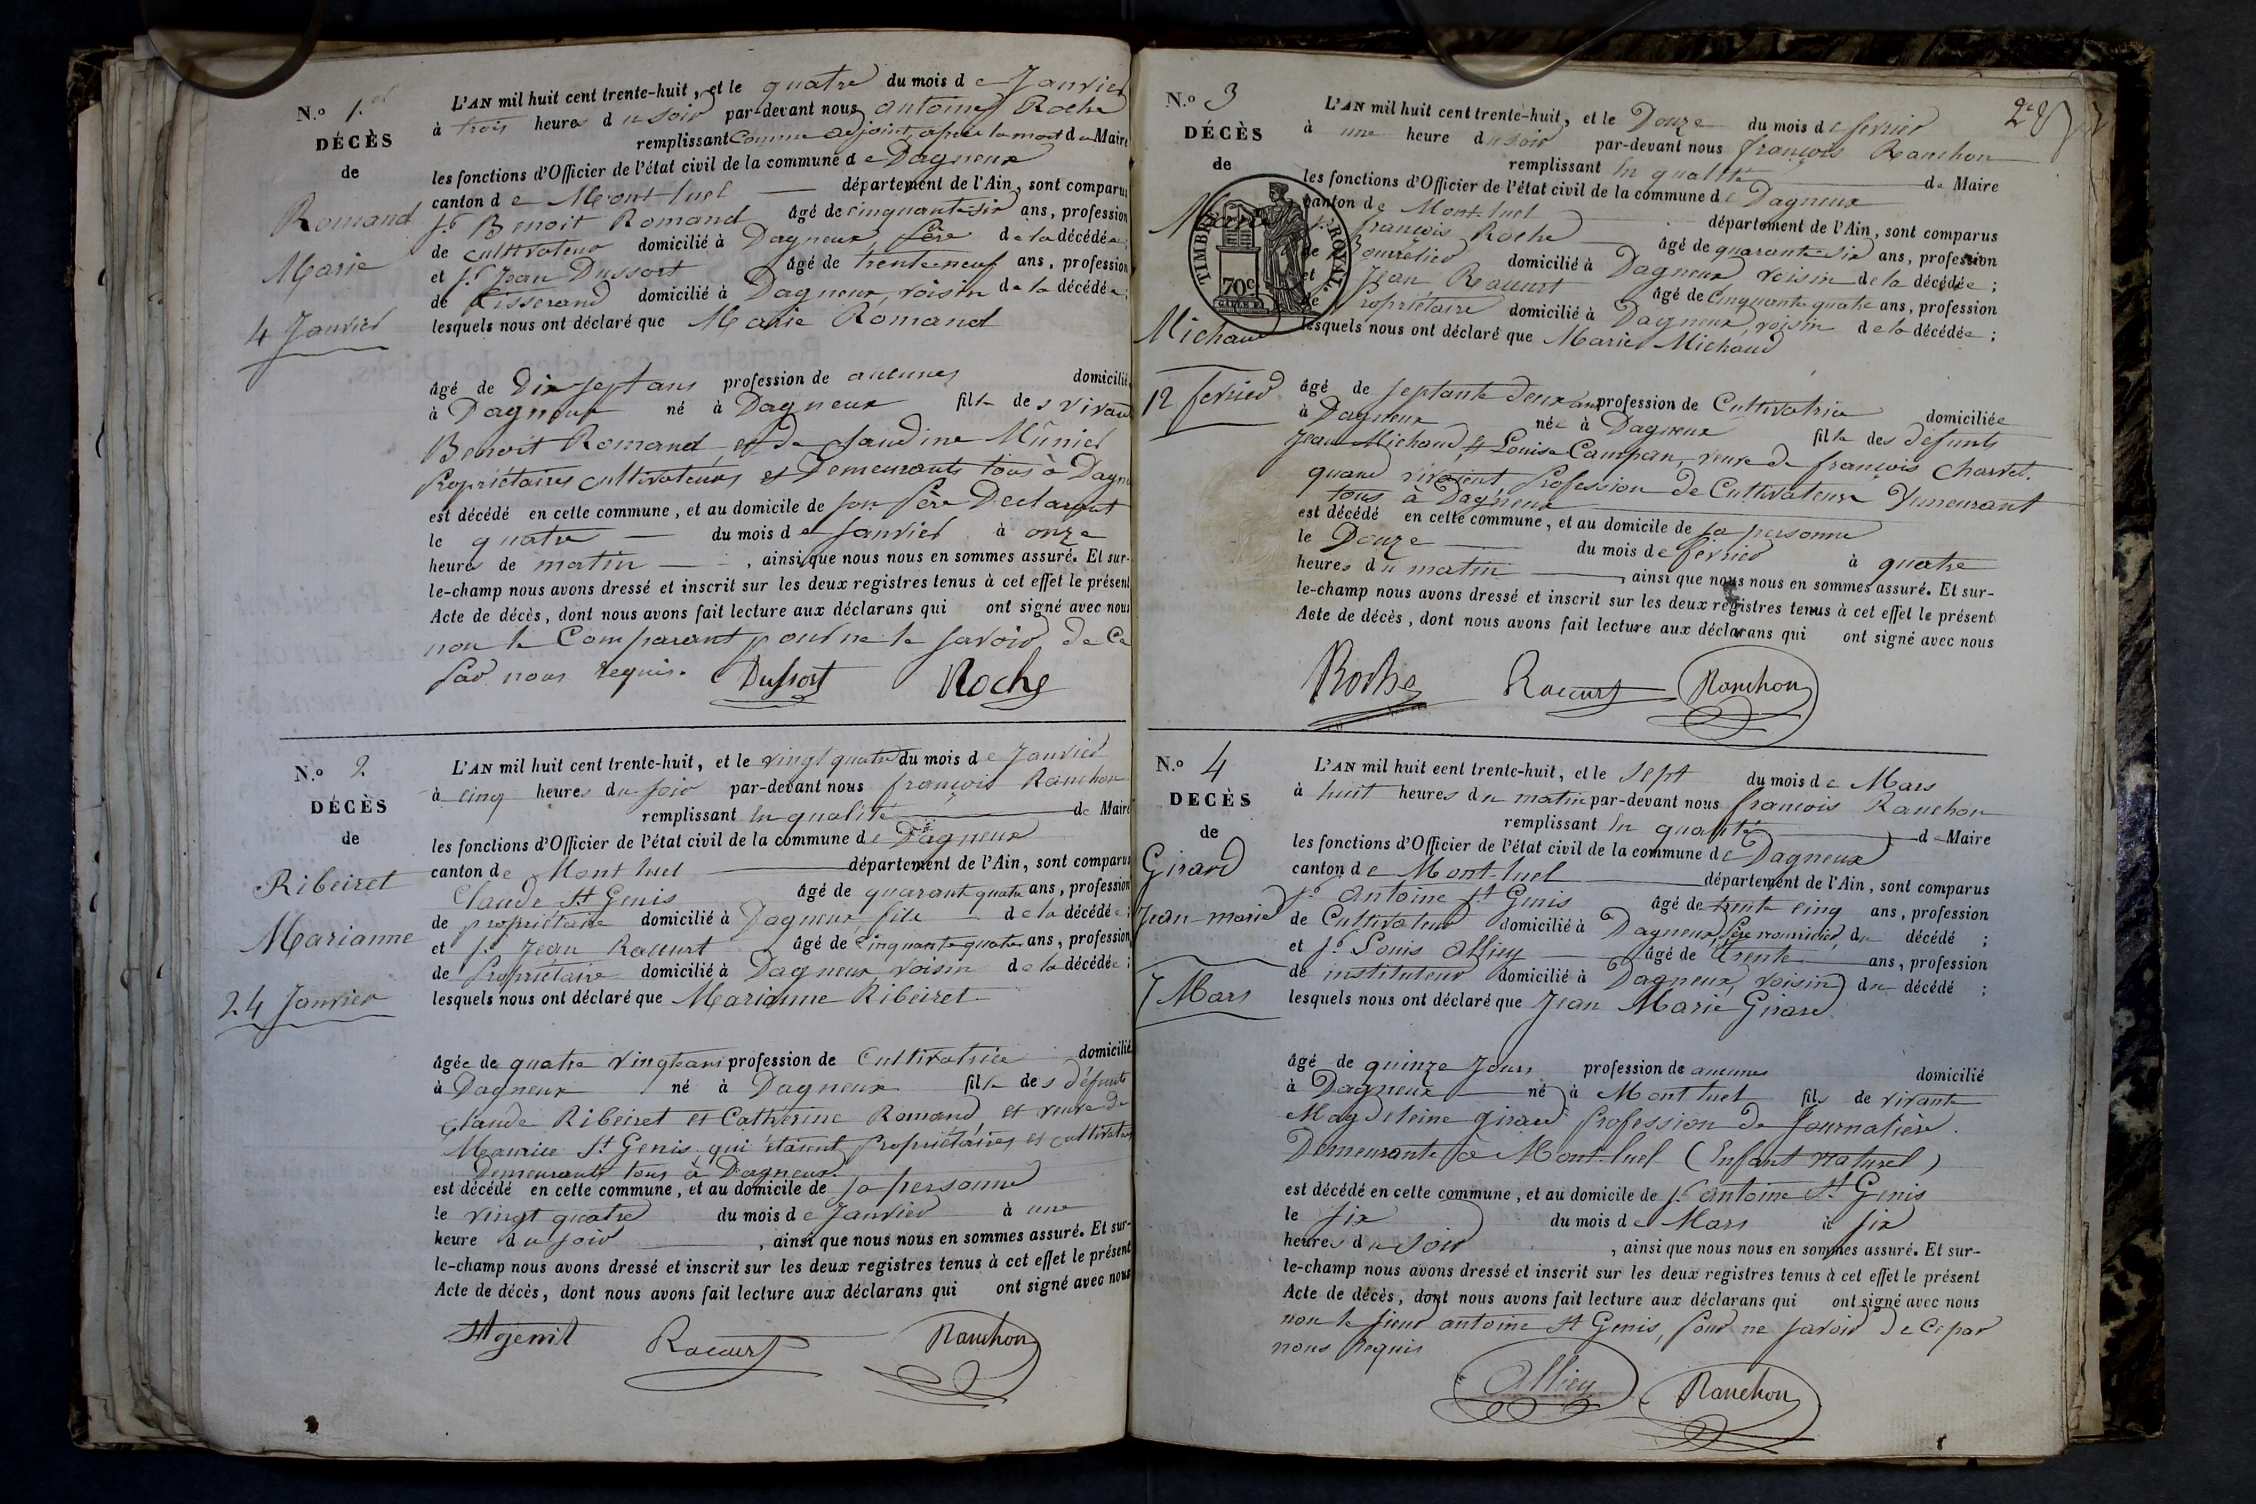 N.° 1.er
DÉCÈS
de
Romand
Marie
4 Janvier
L'AN mil huit cent trente-huit, et le quatre du mois de Janvier
à trois heures du soir par-devant nous antoine Roche
remplissant comme adjoint, après la mort du Maire
les fonctions d'Officier de l'état civil de la commune de Dagneux
canton de Mont-luel département de l'Ain, sont comparus
s.r Benoit Romand âgé de cinquante-six ans, profession
de cultivateur domicilié à Dagneux, père de la décédée;
et s.r Jean Dussort âgé de trente-neuf ans, profession
de Tisserand domicilié à Dagneux, voisin de la décédée;
lesquels nous ont déclaré que Marie Romand
âgé de Dix sept ans profession de aucunes domicilié
à Dagneux né à Dagneux fille des vivant
Benoit Romand et de Claudine Mûnier
Propriétaires cultivateurs et Demeurants tous à Dagn
est décédé en cette commune, et au domicile de son Père Déclarant
le quatre du mois de Janvier à onze
heures de matin, ainsi que nous nous en sommes assuré. Et sur-
le-champ nous avons dressé et inscrit sur les deux registres tenus à cet effet le présent
Acte de décès, dont nous avons fait lecture aux déclarans qui ont signé avec nous
non le Comparant pour ne le savoir de ce
par nous requis. Dussort Roche
N.° 2
DÉCÈS
de
Ribeiret
Marianne
24 Janvier
L'AN mil huit cent trente-huit, et le vingt quatre du mois de Janvier
à cinq heures du soir par-devant nous françois Ranchon
remplissant en qualité de Maire
les fonctions d'Officier de l'état civil de la commune de Dagneux
canton de Mont luel département de l'Ain, sont comparus
Claude St Genis âgé de quarant quatre ans, profession
de propriétaire domicilié à Dagneux, fils de la décédée;
et s.r Jean Raccurt âgé de Cinquante quatre ans, profession
de Propriétaire domicilié à Dagneux, voisin de la décédée;
lesquels nous ont déclaré que Marianne Ribeiret
âgée de quatre vingts ans profession de Cultivatrice domicilié
à Dagneux né à Dagneux fille des défunts
Claude Ribeiret et Catherine Romand, et veuve de
Maurice St Genis qui étaient Propriétaires et cultivateurs
Demeurants tous à Dagneux.
est décédé en cette commune, et au domicile de sa personne
le vingt quatre du mois de Janvier à une
heure du soir, ainsi que nous nous en sommes assuré. Et sur-
le-champ nous avons dressé et inscrit sur les deux registres tenus à cet effet le présent
Acte de décès, dont nous avons fait lecture aux déclarans qui ont signé avec nous
St genis Raccurt Ranchon
N.° 3
DÉCÈS
de
Michaud
12 fevrier
TIMBRE ROYAL
70c
L'AN mil huit cent trente-huit, et le Douze du mois de fevrier
à une heure du soir par-devant nous françois Ranchon
remplissant en qualité de Maire
les fonctions d'Officier de l'état civil de la commune de Dagneux
canton de Mont-luel département de l'Ain, sont comparus
s.r françois Roche âgé de quarante-six ans, profession
de Bourrelier domicilié à Dagneux voisin de la décédée;
et Jean Raccurt âgé de Cinquante quatre ans, profession
de Propriétaire domicilié à Dagneux, voisin de la décédée;
lesquels nous ont déclaré que Marie Michaud
âgé de septante deux ans profession de Cultivatrice domiciliée
à Dagneux née à Dagneux fille des défunts
Jean Michaud et Louise Campan, veuve de françois Charvet.
quand vivaient, Profession de Cultivateur Demeurant
tous à Dagneux
est décédé en cette commune, et au domicile de sa personne
le Douze du mois de fevrier à quatre
heures du matin, ainsi que nous nous en sommes assuré. Et sur-
le-champ nous avons dressé et inscrit sur les deux registres tenus à cet effet le présent
Acte de décès, dont nous avons fait lecture aux déclarans qui ont signé avec nous
Roche Raccurt Ranchon
N.° 4
DECÈS
de
Girard
Jean-marie
7 Mars
L'AN mil huit cent trente-huit, et le sept du mois de Mars
à huit heures du matin par-devant nous françois Ranchon
remplissant en qualité de Maire
les fonctions d'Officier de l'état civil de la commune de Dagneux
canton de Mont-luel département de l'Ain, sont comparus
s.r Antoine St Genis âgé de trente cinq ans, profession
de Cultivateur domicilié à Dagneux, Père nourricier, du décédé;
et s.r Louis Alliey âgé de trente ans, profession
de instituteur domicilié à Dagneux, voisin du décédé;
lesquels nous ont déclaré que Jean Marie Girard
âgé de quinze Jours profession de aucunes domicilié
à Dagneux né à Mont luel fils de vivante
Magdeleine girard profession de Journalière.
Demeurante à Mont-luel (Enfant naturel)
est décédé en cette commune, et au domicile de s.r Antoine St Genis
le six du mois de Mars à six
heures du soir, ainsi que nous nous en sommes assuré. Et sur-
le-champ nous avons dressé et inscrit sur les deux registres tenus à cet effet le présent
Acte de décès, dont nous avons fait lecture aux déclarans qui ont signé avec nous
non le sieur antoine St Genis, pour ne savoir de ce par
nous requis
Alliey Ranchon